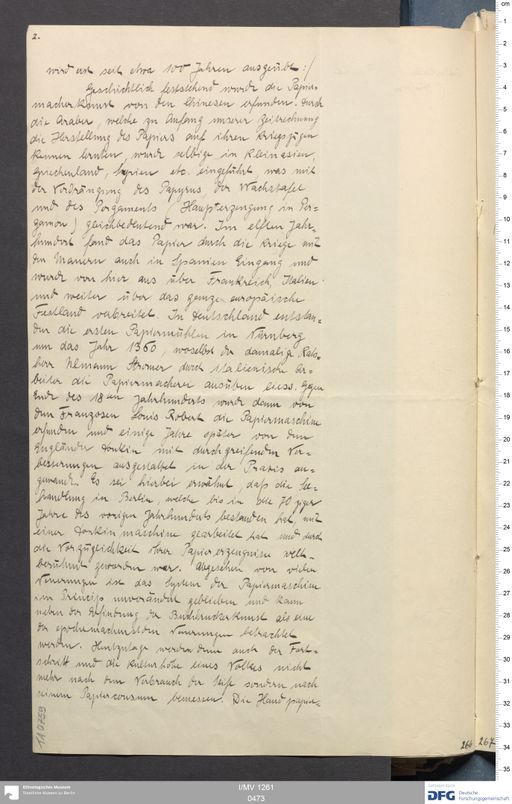 2.
wird erst seit etwa 100 Jahren ausgeübt :/
Geschichtlich feststehend wurde die Papier-
macherkunst von den Chinesen erfunden. Durch
die Araber, welche zu Anfang unserer Zeitrechnung
die Herstellung des Papiers auf ihren Kriegszügen
kennen lernten, wurde selbige in Kleinasien,
Griechenland, Syrien etc. eingeführt, was mit
der Verdrängung des Papyrus, der Wachstafel
und des Pergaments (Haupterzeugung in Per-
gamon) gleichbedeutend war. Im elften Jahr-
hundert fand das Papier durch die Kriege mit
den Mauren auch in Spanien Eingang und
wurde von hier aus über Frankreich, Italien
und weiter über das ganze europäische
Festland verbreitet. In Deutschland entstan-
den die ersten Papiermühlen in Nürnberg
um das Jahr 1360, woselbst der damalige Rats-
herr Ulmann Stromer durch italienische Ar-
beiter die Papiermacherei ausüben liess. Gegen
Ende des 18ten Jahrhunderts wurde dann von
dem Franzosen Louis Robert die Papiermaschine
erfunden und einige Jahre später von dem
Engländer Donkin mit durchgreifenden Ver-
besserungen ausgestattet in der Praxis an-
gewandt. Es sei hierbei erwähnt, daß die See-
handlung in Berlin, welche bis in die 70ziger
Jahre des vorigen Jahrhunderts bestanden hat, mit
einer Donkinmaschine gearbeitet hat und durch
die Vorzüglichkeit ihrer Papiererzeugnisse welt-
berühmt geworden war. Abgesehen von vielen
Neuerungen ist das System der Papiermaschine
im Princip unverändert geblieben und kann
neben der Erfindung der Buchdruckerkunst als eine
der epochemachendsten Neuerungen betrachtet
werden. Heutzutage werden denn auch der Fort-
schritt und die Kulturhöhe eines Volkes nicht
mehr nach dem Verbrauch der Seife sondern nach
seinem Papierconsum bemessen. Die Hand papier-
TA 0759
266 267
I/MV 1261
0473
Ethnologisches Museum
Staatliche Museen zu Berlin
Gefördert durch
DFG Deutsche
Forschungsgemeinschaft
cm
01
1
2
3
4
5
6
7
8
9
10
11
12
13
14
15
16
17
18
19
20
21
22
23
24
25
26
27
28
29
30
31
32
33
34
35